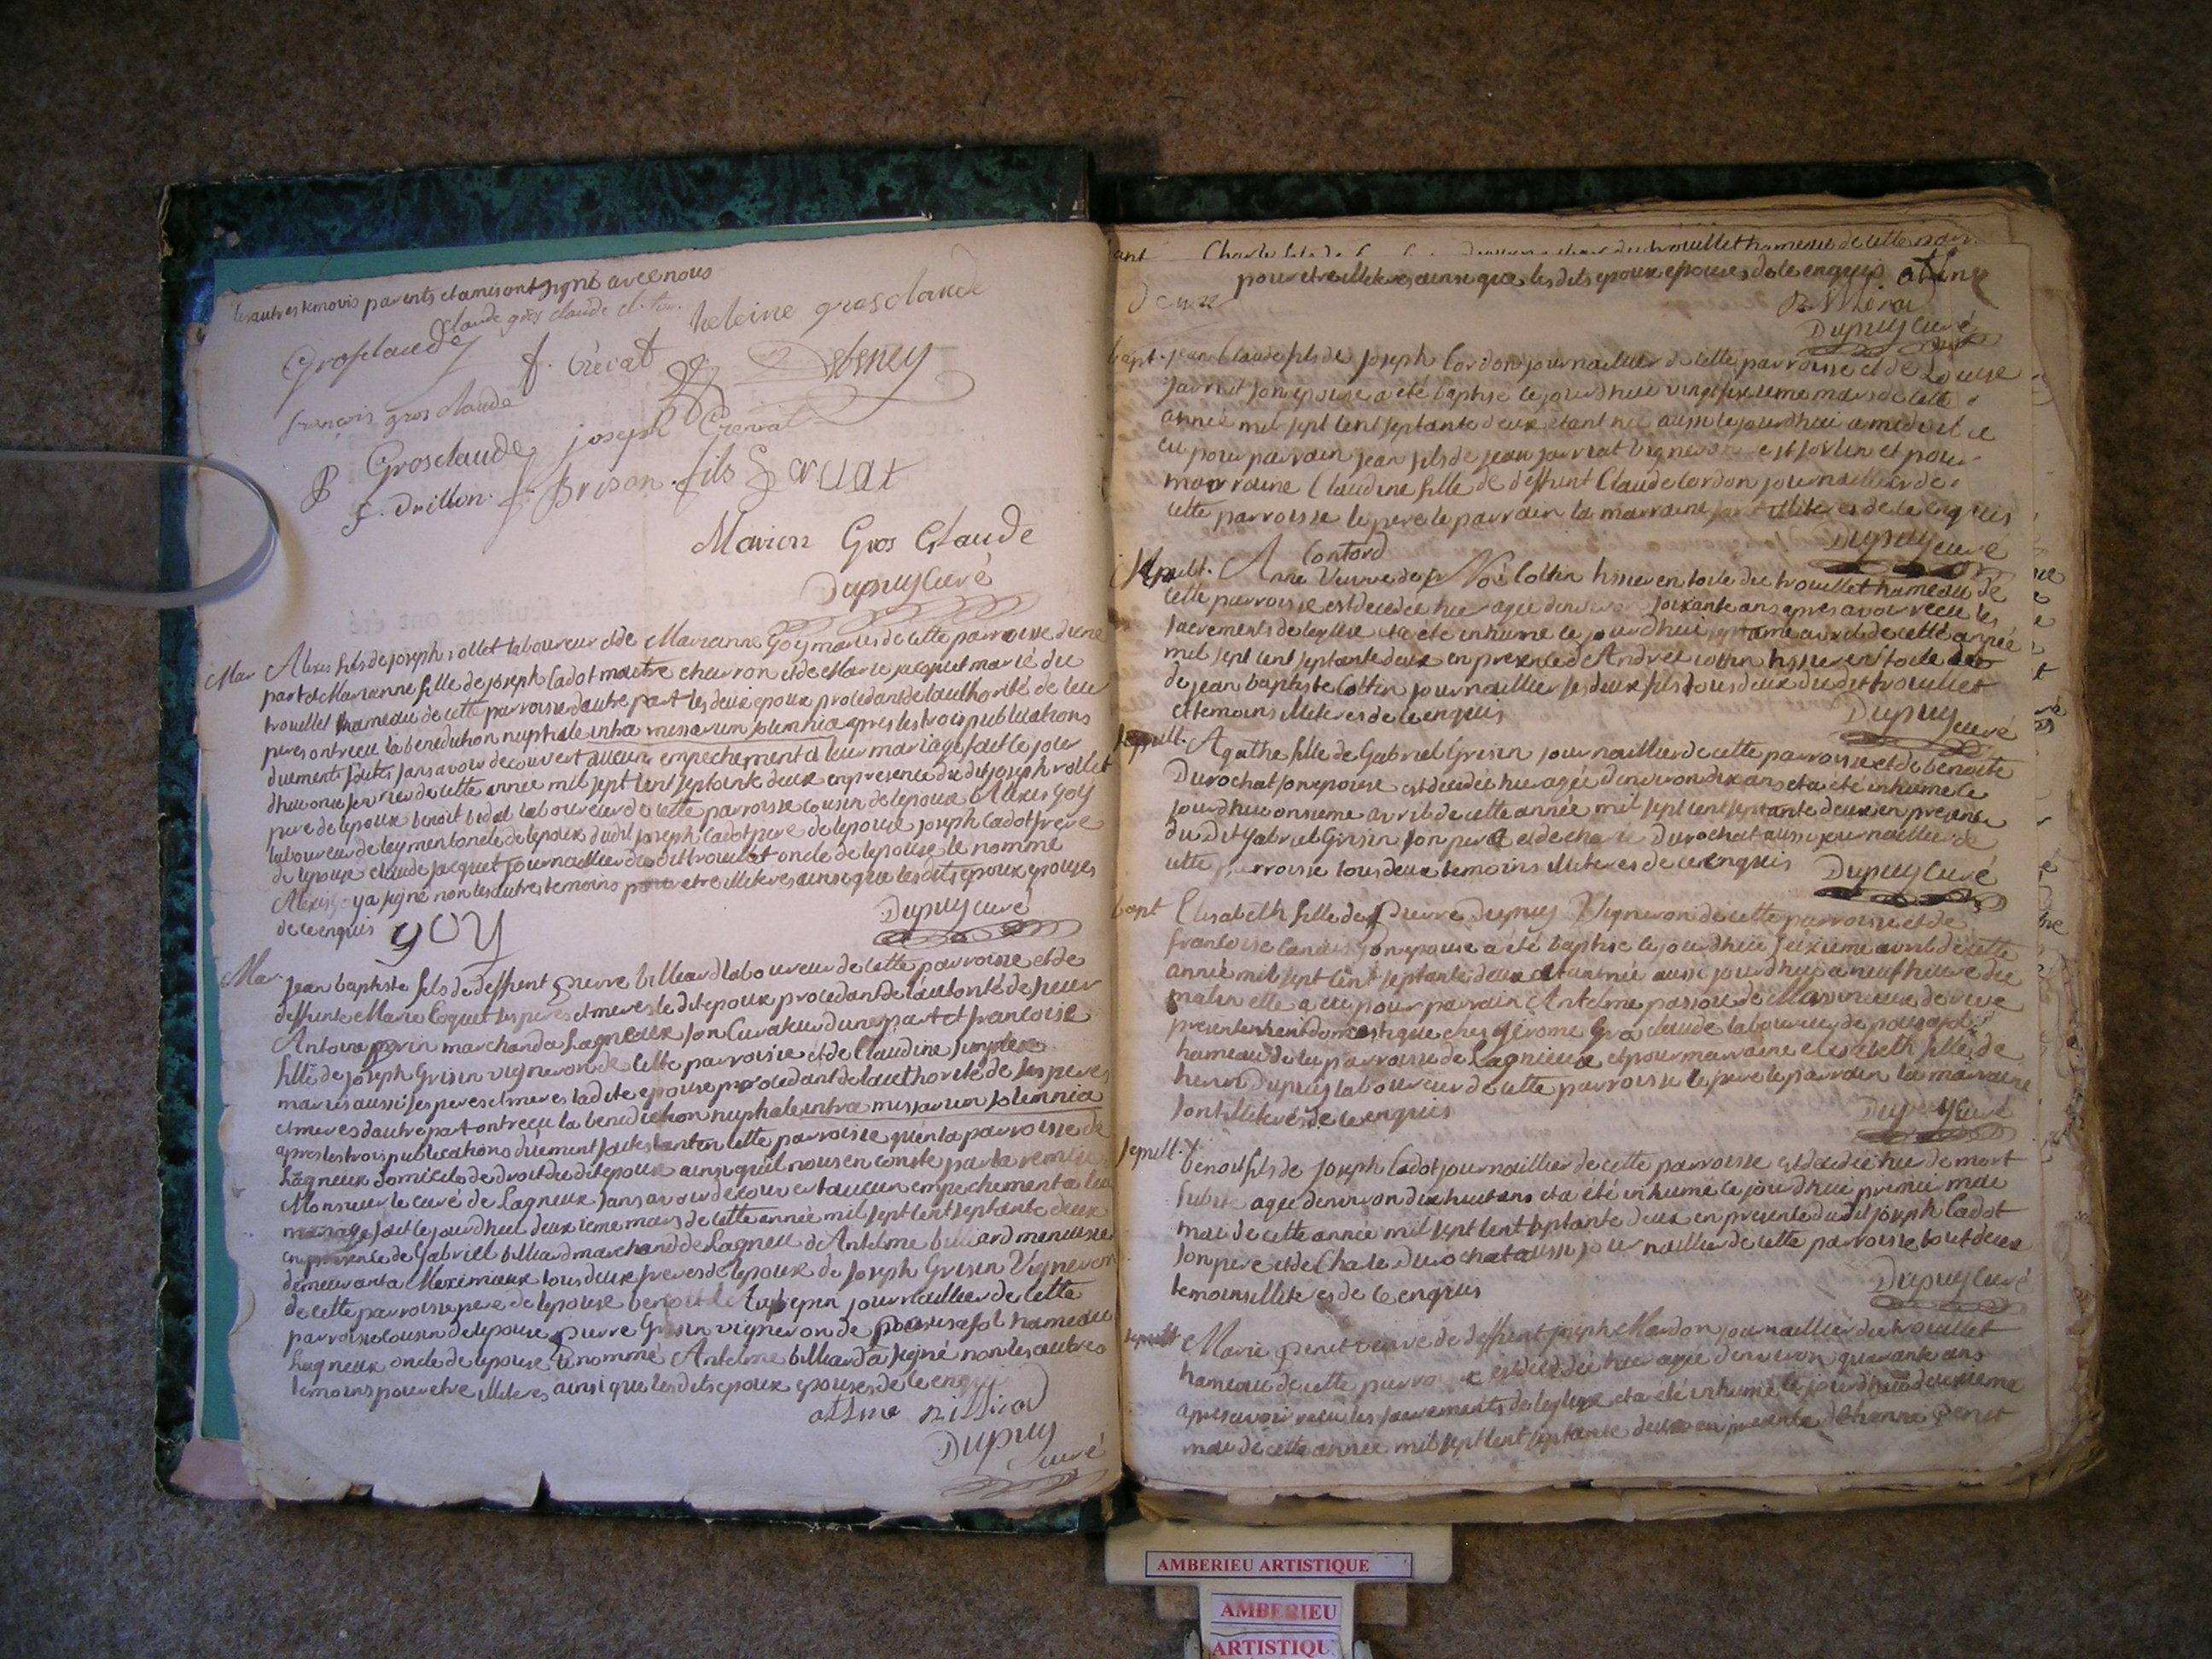 les autres temoins parents et amis ont signé avec nous
Claude gros claude
heleine gros claude
Grosclaude
f. Crevat
françois gros claude
joseph Crevat
P Grosclaude
f. Drillon. f. Brison fils
Marion Gros Claude
Dupuy Curé
Mar Alexis fils de joseph rollet laboureur et de Marianne Goy mariés de cette parroisse d'une
part et Marianne fille de joseph Cadot maitre charron et de Marie jacquet marié du
trouillet hameau de cette parroisse d'autre part les deux epoux procedant de l'authorité de leur
peres ont recu la benediction nuptiale intra missarum solemnia apres les trois publications
duement faites sans avoir decouvert aucun empechement a leur mariage fait ce jour
dhui onze fevrier de cette année mil sept cent septante deux en presence du dit joseph rollet
pere de lepoux benoit bidal laboureur de cette parroisse cousin de lepoux Alexis Goy
laboureur de leyment oncle de lepoux du dit joseph Cadot pere de lepouse joseph Cadot frere
de lepouse claude jacquet journaillier du dit trouillet oncle de lepouse le nomme
Alexis goy a signé non les autres temoins pour etre illiteres ainsi que les dits epoux epouses
de ce enquis goy
Dupuy curé
Mar. Jean baptiste fils de deffunt pierre billiard laboureur de cette parroisse et de
deffunte Marie Coquet ses peres et meres le dit epoux procedant de l'autorité de sieur
Antoine perrin marchand a Lagneux son Curateur d'une part et francoise
fille de joseph Grisin vigneron de cette parroisse et de Claudine
mariés aussi ses peres et meres la dite epouse procedant de l'authorité de ses peres
et meres d'autre part ont reçu la benediction nuptiale intra missarum solemnia
apres les trois publications duement faites tant en cette parroisse qu'en la parroisse de
Lagneux domicile de droit du dit epoux ainsi qu'il nous en conste par la remise
Monsieur le curé de Lagneux sans avoir decouvert aucun empechement a leur
mariage fait le jourdhui deuxieme mars de cette année mil sept cent septante deux
en presence de Gabriel billiard marchand de Lagneu d'Antelme billiard menusier
demeurant a Meximieux tous deux freres de lepoux de joseph Grisin Vigneron
de cette parroisse pere de lepouse benoit journaillier de cette
parroisse cousin de lepouse pierre Grisin vigneron de hameau
Lagneux oncle de lepouse le nommé Antelme billiard a signé non les autres
temoins pour etre illiteres ainsi que les dits epoux epouses de ce enquis
Dupuy
Curé
hameau de cette
pour etre illiteres ainsi que les dits epoux epouses de ce enquis
Dupuy Curé
bapt. jean Claude fils de joseph Cordon journaillier de cette parroisse et de Louise
son epouse a été baptisé le jourdhui vingt sixieme mars de cette
année mil sept cent septante deux etant né aussi le jourdhui a midi il a
eu pour parrain jean fils de jean vigneron et pour
marraine Claudine fille de deffunt Claude Cordon journaillier de
cette parroisse le pere le parrain la marraine sont illiteres de ce enquis
Dupuy curé
Sepult. Anne Contord Veuve de Noé Cottin tisseren toile du trouillet hameau de
cette parroisse est decedée hier agée d'environ soixante ans apres avoir recu les
sacrements de leglise et a été inhumé le jourdhui avril de cette année
mil sept cent septante deux en presence d'André cottin tisseren toile
de jean baptiste Cottin journaillier ses deux fils tous deux du dit trouillet
et temoins illiteres de ce enquis
Dupuy curé
sepult. Agathe fille de Gabriel Grisin journaillier de cette parroisse et de benoite
Durochat son epouse est decedée hier agée d'environ dix ans et a été inhumé le
jourdhui onsieme avril de cette année mil sept cent septante deux en presence
du Dit Gabriel Grisin son pere et de charle Durochat aussi journaillier de
cette parroisse tous deux temoins illiteres de ce enquis
Dupuy Curé
bapt Elisabeth fille de Pierre Dupuy Vigneron de cette parroisse et de
francoise son epouse a été baptisé le jourdhui seixieme avril de cette
année mil sept cent septante deux etant née aussi jourdhui a neuf heure du
matin elle a eu pour parrain Antelme de
presentement domestique ches gérome Gros claude laboureur de
hameau de la parroisse de Lagnieux et pour marraine elisabeth fille de
henri Dupuy laboureur de cette parroisse le pere le parrain la marraine
sont illiteres de ce enquis
Dupuy Curé
sepult. benoit fils de joseph Cadot journaillier de cette parroisse est decedé hier de mort
subite agée d'environ dix huit ans et a été inhumé le jourdhui premier mai
mai de cette année mil sept cent septante deux en presence du dit joseph Cadot
son pere et de Charle Durochat aussi journaillier de cette parroisse tout deux
temoins illiteres de ce enquis
Dupuy Curé
sepult Marie penet veuve de deffunt joseph Mardon journaillier du trouillet
hameau de cette parroisse est decedée hier agée d'environ quarante ans
apres avoir reçu les sacrements de leglise et a été inhumé le jourdhui deuxieme
mai de cette année mil sept cent septante deux en presence d'Etienne Penet
AMBERIEU ARTISTIQUE
AMBERIEU
ARTISTIQU